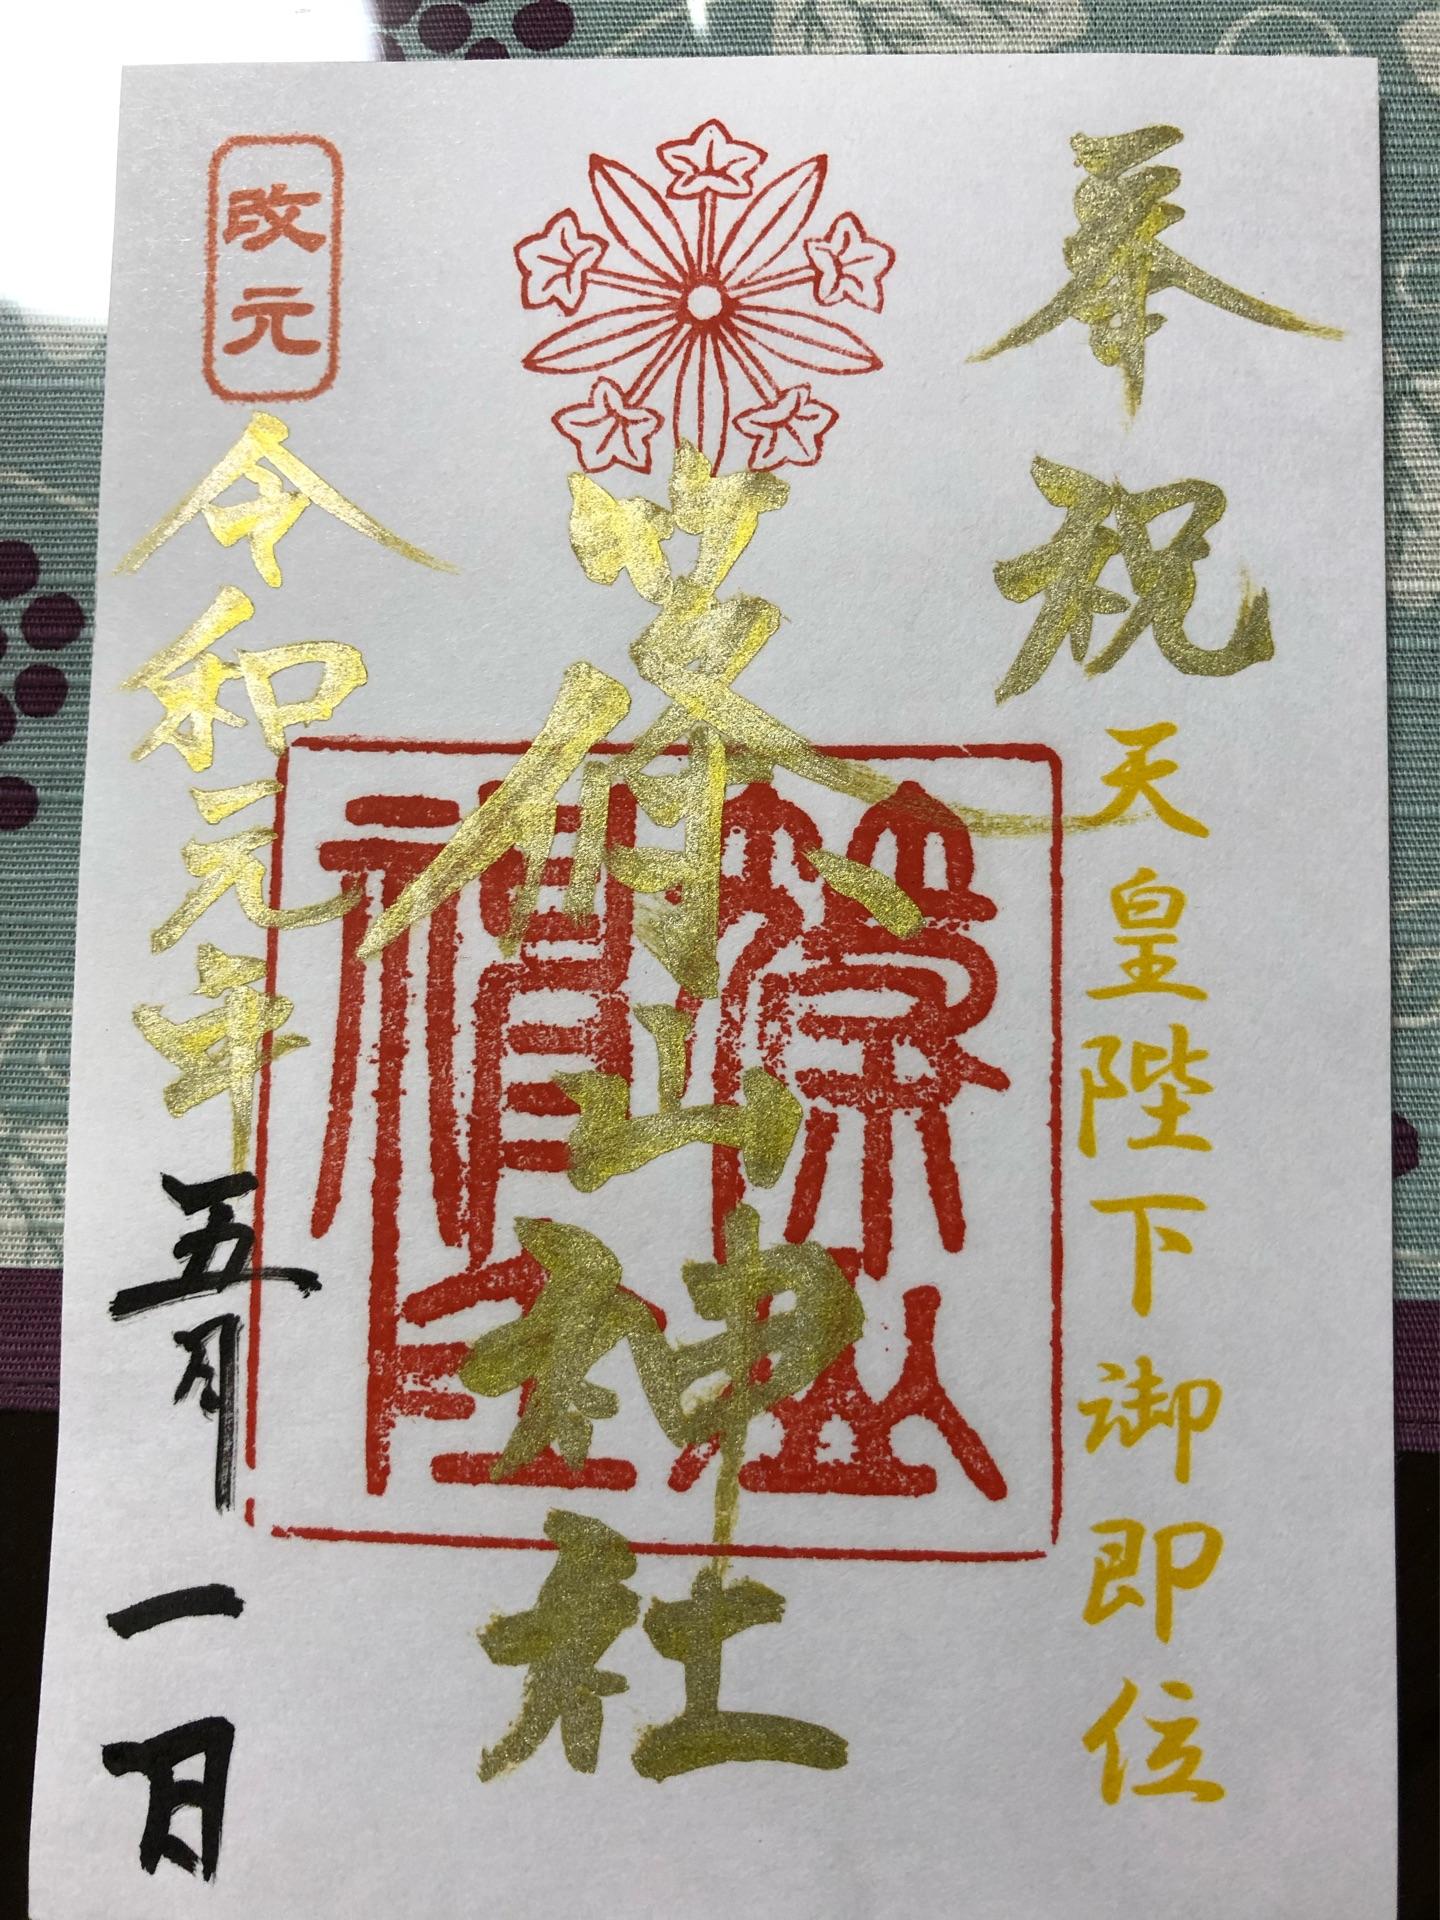 奉祝
天皇陛下御即位
篠山神社
篠山神社
改元
令和元年
五月一日